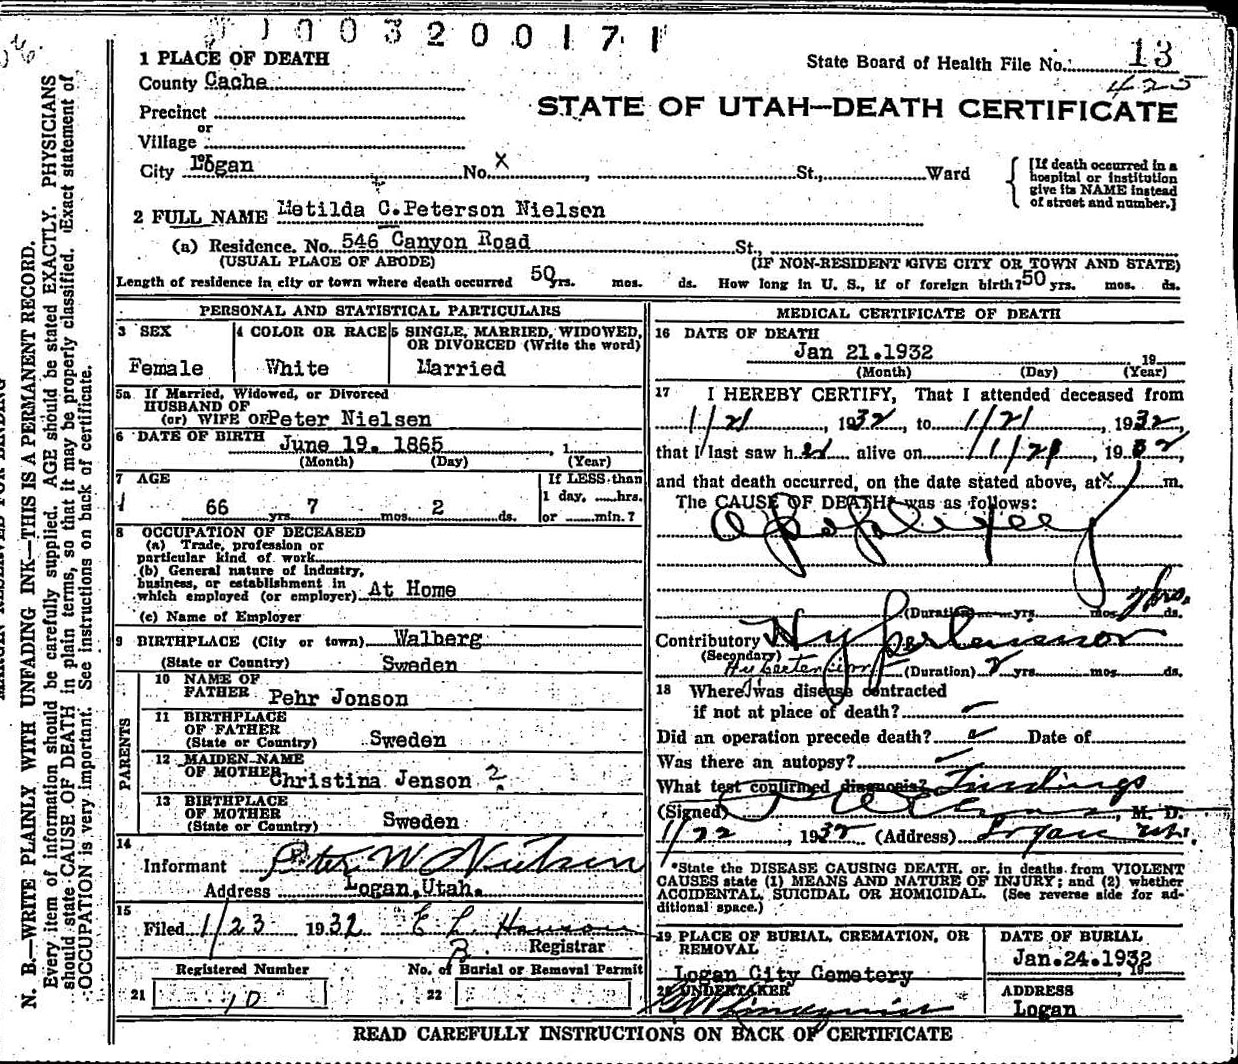 1003200171
1 PLACE OF DEATH
State Board of Health File No. 13
County Cache
425
STATE OF UTAH—DEATH CERTIFICATE
Precinct
or
Village
City Logan No. X St., Ward
[If death occurred in a
hospital or institution
give its NAME instead
of street and number.]
2 FULL NAME Metilda C. Peterson Nielsen
(a) Residence. No. 546 Canyon Road St.,
(USUAL PLACE OF ABODE) (IF NON-RESIDENT GIVE CITY OR TOWN AND STATE)
Length of residence in city or town where death occurred 50 yrs. mos. ds. How long in U. S., if of foreign birth? 50 yrs. mos. ds.
PERSONAL AND STATISTICAL PARTICULARS
3 SEX
Female
4 COLOR OR RACE
White
5 SINGLE, MARRIED, WIDOWED,
OR DIVORCED (Write the word)
Married
5a If Married, Widowed, or Divorced
HUSBAND OF
(or) WIFE OF Peter Nielsen
6 DATE OF BIRTH June 19. 1865, 1
(Month) (Day) (Year)
7 AGE
If LESS than
1 day, hrs.
66 yrs. 7 mos. 2 ds. or min.?
8 OCCUPATION OF DECEASED
(a) Trade, profession or
particular kind of work
(b) General nature of industry,
business, or establishment in
which employed (or employer) At Home
(c) Name of Employer
9 BIRTHPLACE (City or town) Walberg
(State or Country) Sweden
PARENTS
10 NAME OF
FATHER Pehr Jonson
11 BIRTHPLACE
OF FATHER
(State or Country) Sweden
12 MAIDEN NAME
OF MOTHER Christina Jenson ?
13 BIRTHPLACE
OF MOTHER
(State or Country) Sweden
14
Informant Peter W Nielsen
Address Logan, Utah.
15
Filed 1/23 1932
Registrar
Registered Number
21 10
No. of Burial or Removal Permit
22
MEDICAL CERTIFICATE OF DEATH
16 DATE OF DEATH
Jan 21. 1932 19
(Month) (Day) (Year)
17 I HEREBY CERTIFY, That I attended deceased from
1/21, 1932, to 1/21, 1932,
that I last saw her alive on 1/21, 1932,
and that death occurred, on the date stated above, at X m.
The CAUSE OF DEATH* was as follows:
Apoplexy
(Duration) yrs. mos. 7 hrs. ds.
Contributory Hypertension
(Secondary)
Hypertension (Duration) 2 yrs. mos. ds.
18 Where was disease contracted
if not at place of death?
Did an operation precede death? Date of
Was there an autopsy?
What test confirmed diagnosis? Findings
(Signed) M. D.
1/22, 1932 (Address) Logan Utah
*State the DISEASE CAUSING DEATH, or, in deaths from VIOLENT
CAUSES state (1) MEANS AND NATURE OF INJURY; and (2) whether
ACCIDENTAL, SUICIDAL OR HOMICIDAL. (See reverse side for ad-
ditional space.)
19 PLACE OF BURIAL, CREMATION, OR
REMOVAL
Logan City Cemetery
DATE OF BURIAL
Jan. 24. 1932
19
20 UNDERTAKER
Lindquist
ADDRESS
Logan
READ CAREFULLY INSTRUCTIONS ON BACK OF CERTIFICATE
N. B.—WRITE PLAINLY WITH UNFADING INK—THIS IS A PERMANENT RECORD.
Every item of information should be carefully supplied. AGE should be stated EXACTLY. PHYSICIANS
should state CAUSE OF DEATH in plain terms, so that it may be properly classified. Exact statement of
OCCUPATION is very important. See instructions on back of certificate.